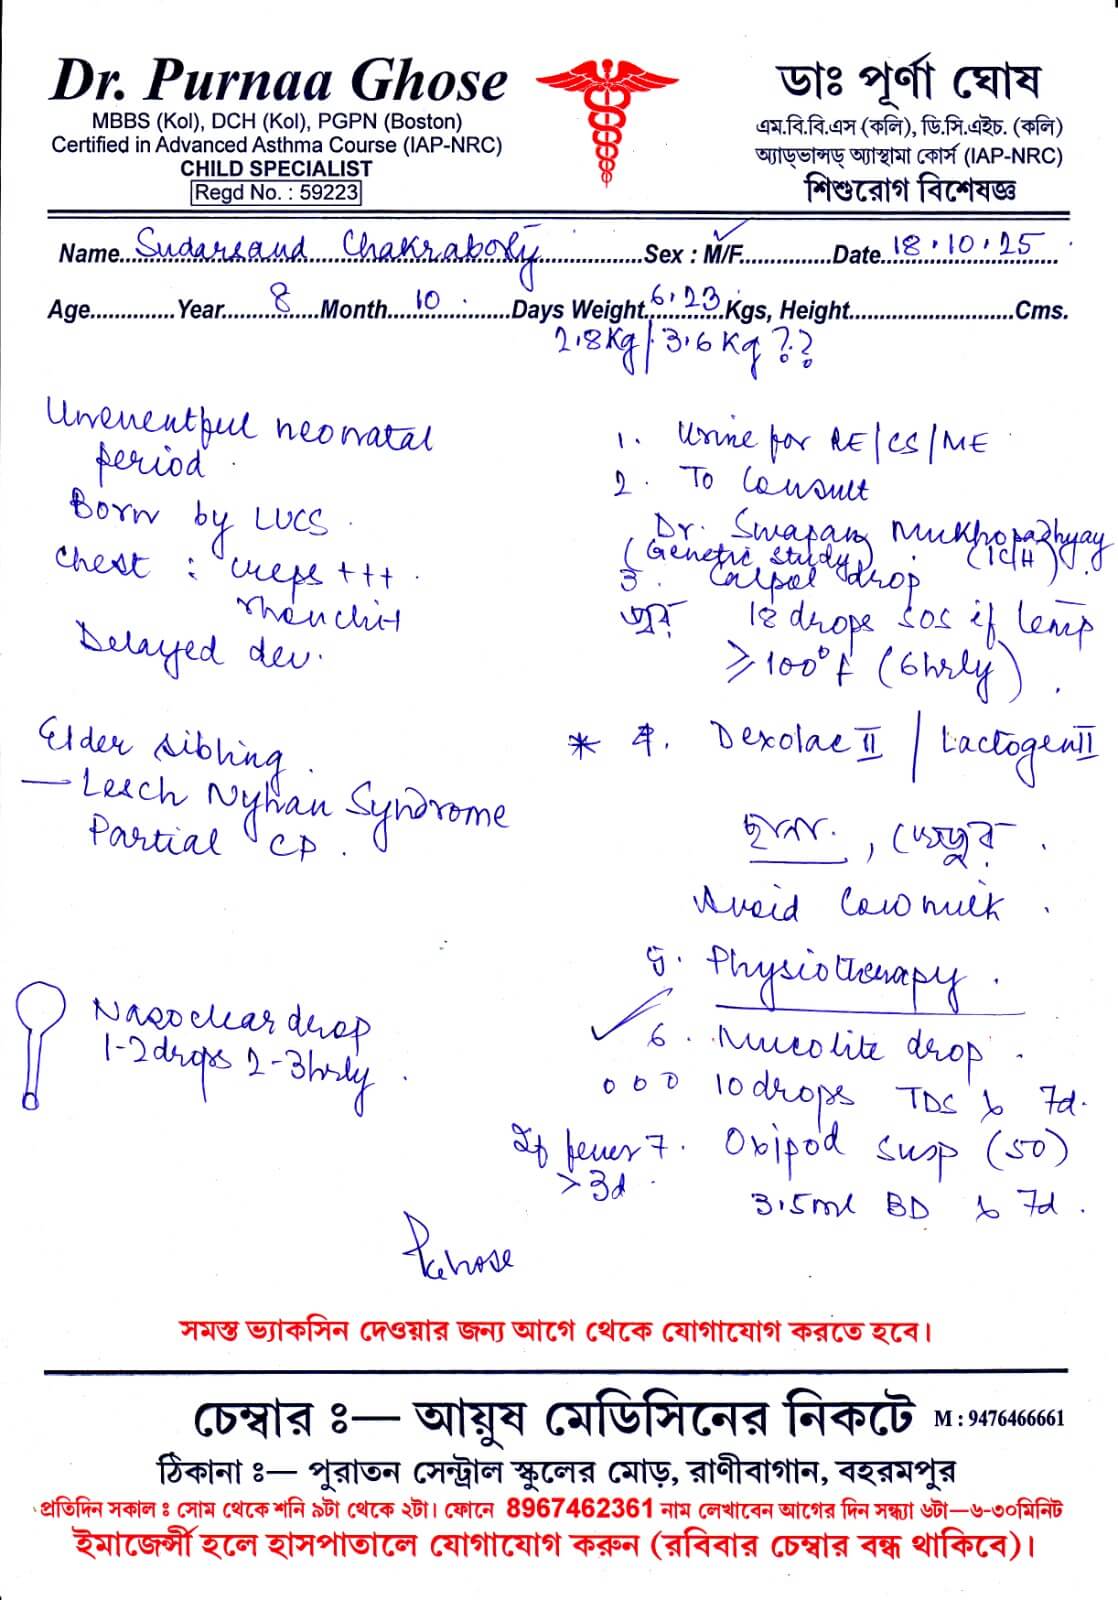 Dr. Purnaa Ghose
MBBS (Kol), DCH (Kol), PGPN (Boston)
Certified in Advanced Asthma Course (IAP-NRC)
CHILD SPECIALIST
Regd No. : 59223
ডাঃ পূর্ণা ঘোষ
এম.বি.বি.এস (কলি), ডি.সি.এইচ. (কলি)
অ্যাড্ভান্সড্ অ্যাস্থামা কোর্স (IAP-NRC)
শিশুরোগ বিশেষজ্ঞ
Name Chakraborty Sex : M/F Date 18.10.25
Age Year 8 Month 10 Days Weight 6.23 Kgs, Height Cms.
2.8Kg/3.6Kg ??
Uneventful neonatal
period
Born by LUCS
Chest : creps +++
rhonchi+
Delayed dev.
Elder sibling
— Lesch Nyhan Syndrome
Partial CP.
Nasoclear drop
1-2 drops 2-3hrly
1. Urine for RE/CS/ME
2. To Consult
Dr. Swapan Mukhopadhyay
(Genetic study) (ICH)
3. Calpol drop
জ্বর 12 drops SOS if temp
≥100°F (6hrly)
* 4. Dexolac II / Lactogen II
ছানা, খেজুর
Avoid Cow milk
5. Physiotherapy
6. Mucolite drop
0 0 0 10 drops TDS x 7d.
If fever 7. Oxipod susp (50)
>3d 3.5ml BD x 7d.
PGhose
সমস্ত ভ্যাকসিন দেওয়ার জন্য আগে থেকে যোগাযোগ করতে হবে।
চেম্বার ঃ— আয়ুষ মেডিসিনের নিকটে M : 9476466661
ঠিকানা ঃ— পুরাতন সেন্ট্রাল স্কুলের মোড়, রাণীবাগান, বহরমপুর
প্রতিদিন সকাল ঃ সোম থেকে শনি ৯টা থেকে ২টা। ফোনে 8967462361 নাম লেখাবেন আগের দিন সন্ধ্যা ৬টা—৬-৩০মিনিট
ইমাজের্ন্সী হলে হাসপাতালে যোগাযোগ করুন (রবিবার চেম্বার বন্ধ থাকিবে)।